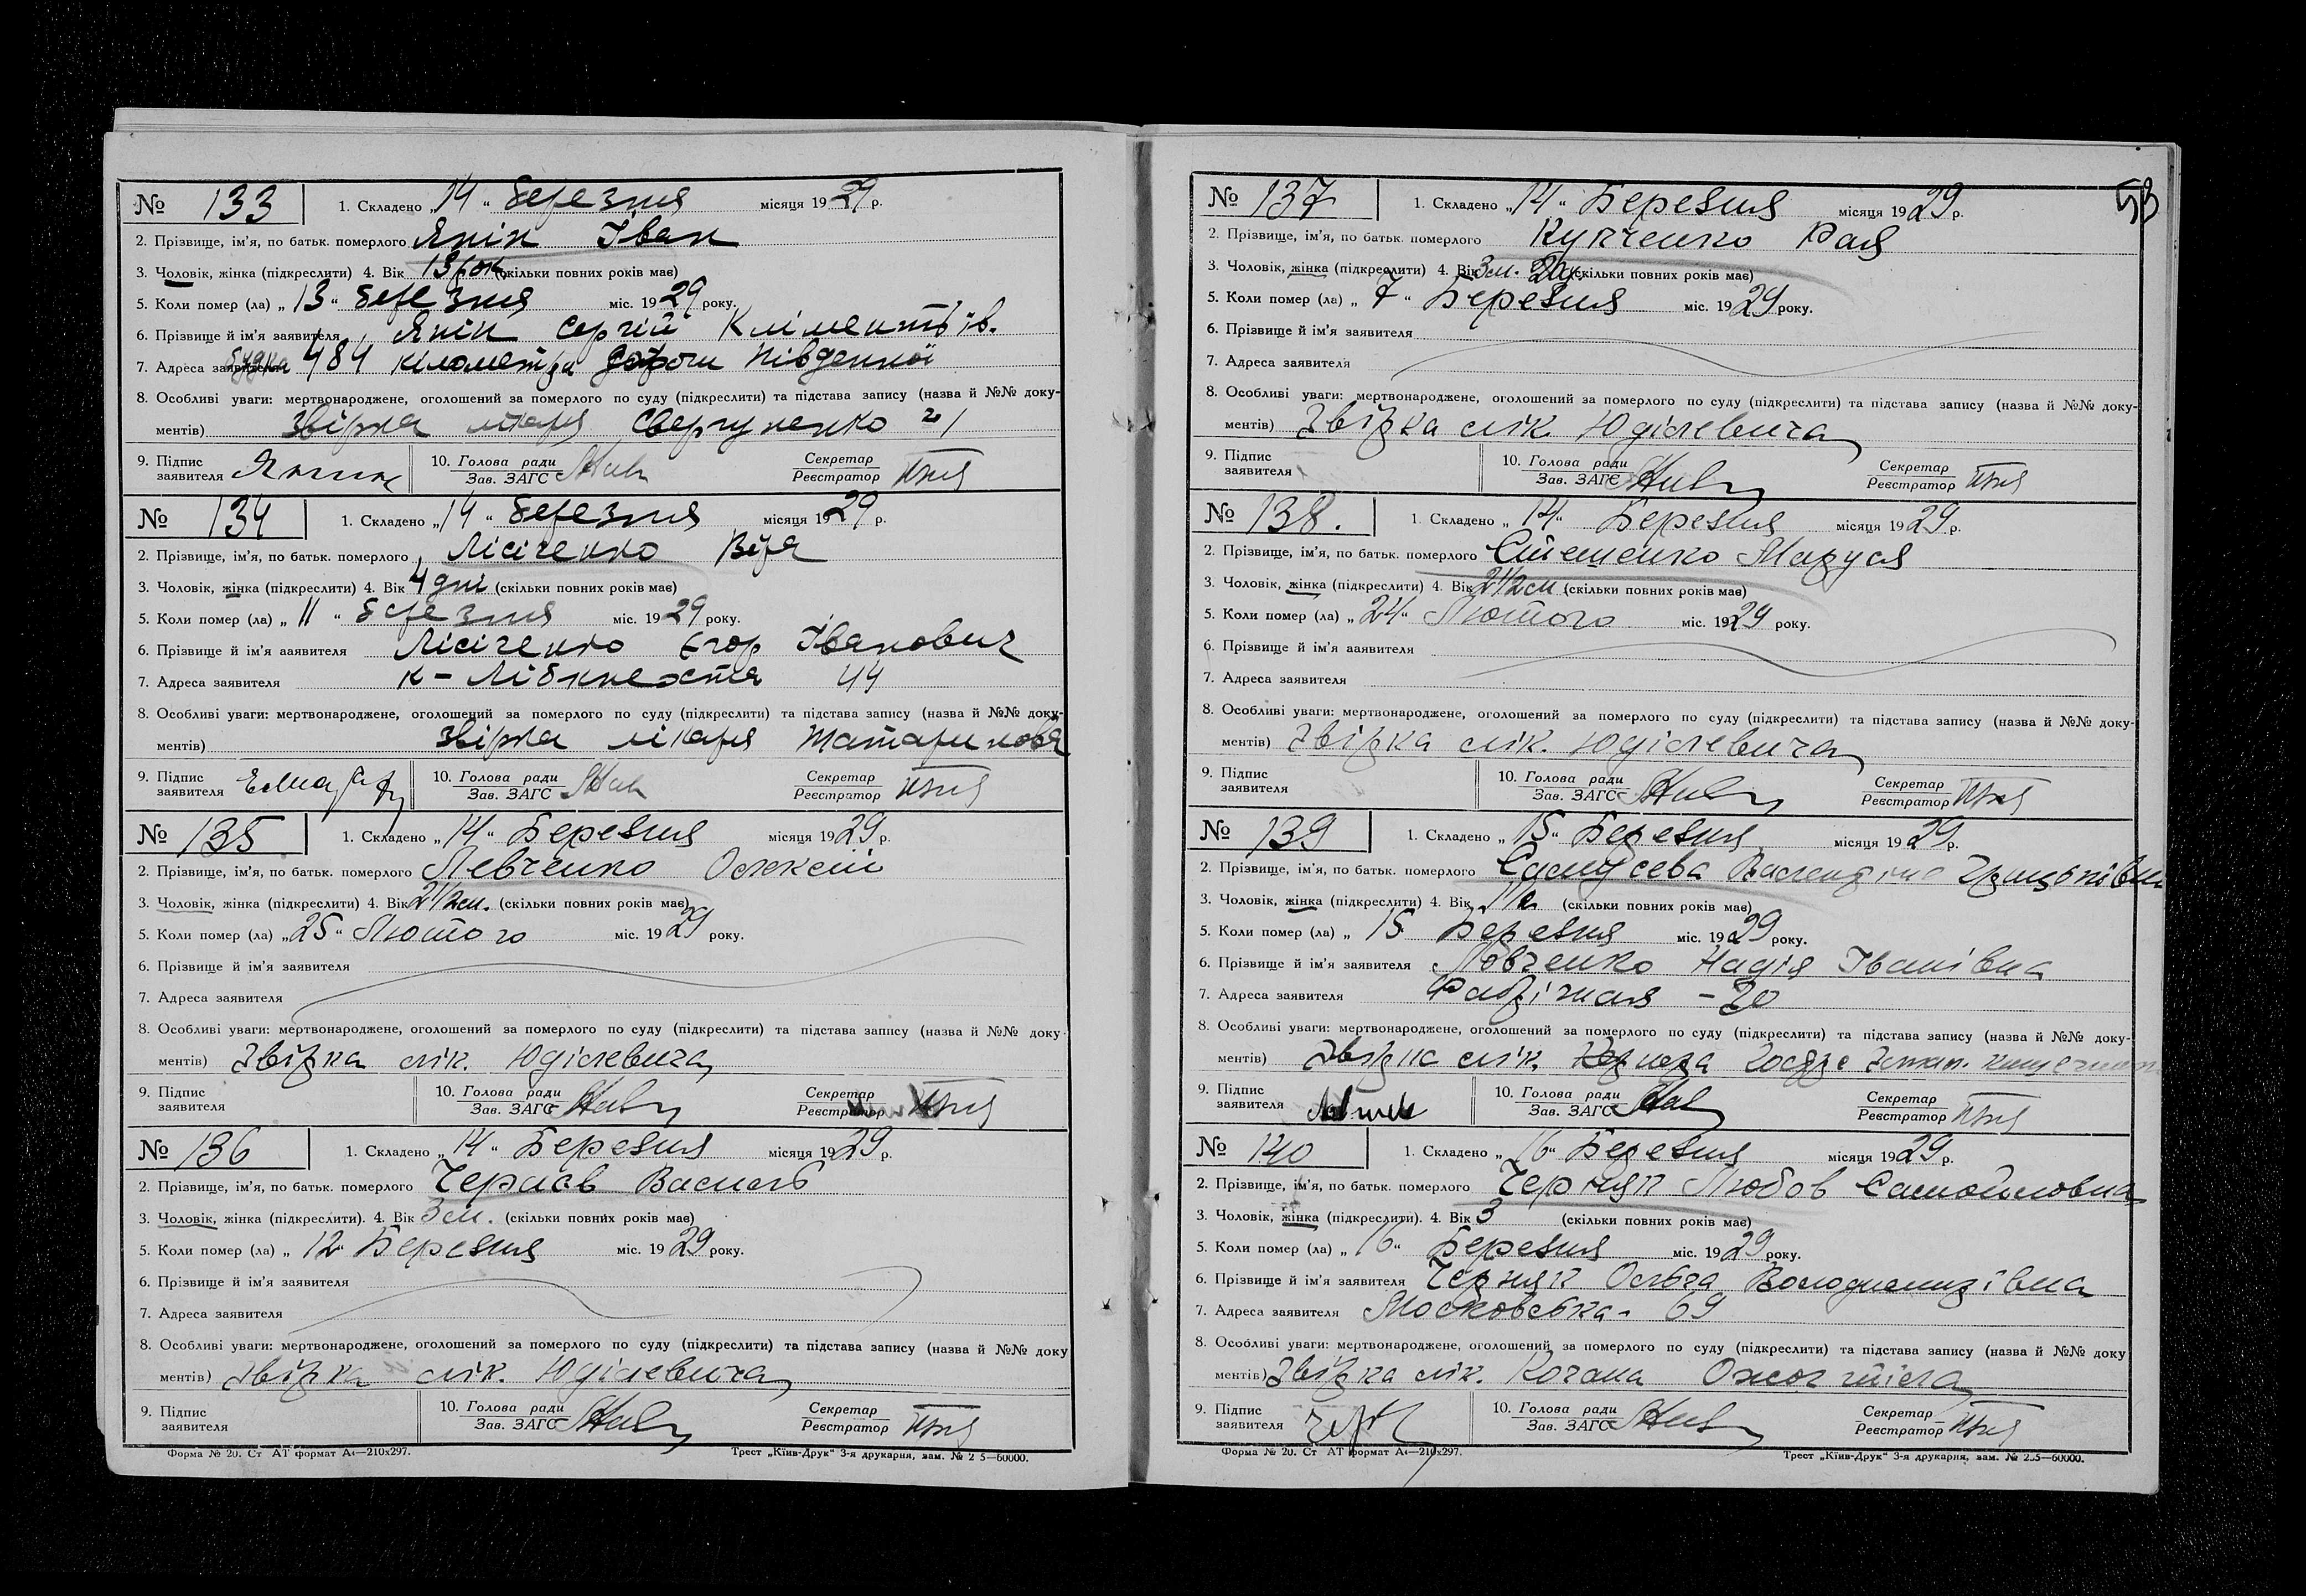 № 133 1. Складено „14“ березня місяця 1929 р.
2. Прізвище, ім'я, по батьк. померлого Янін Іван
3. Чоловік, жінка (підкреслити) 4. Вік 13 рок (скільки повних років має)
5. Коли помер (ла) „13“ березня міс. 1929 року.
6. Прізвище й ім'я заявителя Янін Сергій Кліментьїв.
7. Адреса заявителя будка 484 кілометра Південної
8. Особливі уваги: мертвонароджене, оголошений за померлого по суду (підкреслити) та підстава запису (назва й №№ доку-
ментів) Звірка лікаря
9. Підпис заявителя Янин 10. Голова ради Зав. ЗАГС Секретар Реєстратор
№ 134 1. Складено „14“ березня місяця 1929 р.
2. Прізвище, ім'я, по батьк. померлого Лісіченко Віра
3. Чоловік, жінка (підкреслити) 4. Вік 4 дні (скільки повних років має)
5. Коли помер (ла) „11“ березня міс. 1929 року.
6. Прізвище й ім'я заявителя Лісіченко Єгор Іванович
7. Адреса заявителя К-Лібкнехта 44
8. Особливі уваги: мертвонароджене, оголошений за померлого по суду (підкреслити) та підстава запису (назва й №№ доку-
ментів) Звірка лікаря Татаринова
9. Підпис заявителя 10. Голова ради Зав. ЗАГС Секретар Реєстратор
№ 135 1. Складено „14“ Березня місяця 1929 р.
2. Прізвище, ім'я, по батьк. померлого Левченко Олексій
3. Чоловік, жінка (підкреслити) 4. Вік 2 1/2 м. (скільки повних років має)
5. Коли помер (ла) „25“ Лютого міс. 1929 року.
6. Прізвище й ім'я заявителя
7. Адреса заявителя
8. Особливі уваги: мертвонароджене, оголошений за померлого по суду (підкреслити) та підстава запису (назва й №№ доку-
ментів) Звірка лік. Юділевича
9. Підпис заявителя 10. Голова ради Зав. ЗАГС Секретар Реєстратор
№ 136 1. Складено „14“ Березня місяця 1929 р.
2. Прізвище, ім'я, по батьк. померлого Василь
3. Чоловік, жінка (підкреслити). 4. Вік 3 м. (скільки повних років має)
5. Коли помер (ла) „12“ Березня міс. 1929 року.
6. Прізвище й ім'я заявителя
7. Адреса заявителя
8. Особливі уваги: мертвонароджене, оголошений за померлого по суду (підкреслити) та підстава запису (назва й №№ доку
ментів) Звірка лік. Юділевича
9. Підпис заявителя 10. Голова ради Зав. ЗАГС Секретар Реєстратор
Форма № 20. Ст АТ формат А4—210х297. Трест „Київ-Друк“ 3-я друкарня, зам. № 2 5—60000.
53
№ 137 1. Складено „14“ Березня місяця 1929 р.
2. Прізвище, ім'я, по батьк. померлого Купченко Рая
3. Чоловік, жінка (підкреслити) 4. Вік 3 м. 20 д. (скільки повних років має)
5. Коли помер (ла) „7“ Березня міс. 1929 року.
6. Прізвище й ім'я заявителя
7. Адреса заявителя
8. Особливі уваги: мертвонароджене, оголошений за померлого по суду (підкреслити) та підстава запису (назва й №№ доку-
ментів) Звірка лік. Юділевича
9. Підпис заявителя 10. Голова ради Зав. ЗАГС Секретар Реєстратор
№ 138. 1. Складено „14“ Березня місяця 1929 р.
2. Прізвище, ім'я, по батьк. померлого Стеценко Маруся
3. Чоловік, жінка (підкреслити) 4. Вік 2 1/2 м (скільки повних років має)
5. Коли помер (ла) „24“ Лютого міс. 1929 року.
6. Прізвище й ім'я заявителя
7. Адреса заявителя
8. Особливі уваги: мертвонароджене, оголошений за померлого по суду (підкреслити) та підстава запису (назва й №№ доку-
ментів) Звірка лік. Юділевича
9. Підпис заявителя 10. Голова ради Зав. ЗАГС Секретар Реєстратор
№ 139 1. Складено „15“ Березня місяця 1929 р.
2. Прізвище, ім'я, по батьк. померлого Самусєва Валентіна
3. Чоловік, жінка (підкреслити) 4. Вік (скільки повних років має)
5. Коли помер (ла) „15 Березня міс. 1929 року.
6. Прізвище й ім'я заявителя Надія Іванівна
7. Адреса заявителя Фабрічная - 20
8. Особливі уваги: мертвонароджене, оголошений за померлого по суду (підкреслити) та підстава запису (назва й №№ доку-
ментів) Звірка лік.
9. Підпис заявителя 10. Голова ради Зав. ЗАГС Секретар Реєстратор
№ 140 1. Складено „16“ Березня місяця 1929 р.
2. Прізвище, ім'я, по батьк. померлого Черняк Любов Самойловна
3. Чоловік, жінка (підкреслити). 4. Вік 3 (скільки повних років має)
5. Коли помер (ла) „16“ Березня міс. 1929 року.
6. Прізвище й ім'я заявителя Черняк Ольга Володимирівна
7. Адреса заявителя Московська - 69
8. Особливі уваги: мертвонароджене, оголошений за померлого по суду (підкреслити) та підстава запису (назва й №№ доку
ментів) Звірка лік. Когана Ожог тіла
9. Підпис заявителя 10. Голова ради Зав. ЗАГС Секретар Реєстратор
Форма № 20. Ст АТ формат А4—210х297. Трест „Київ-Друк“ 3-я друкарня, зам. № 235—60000.